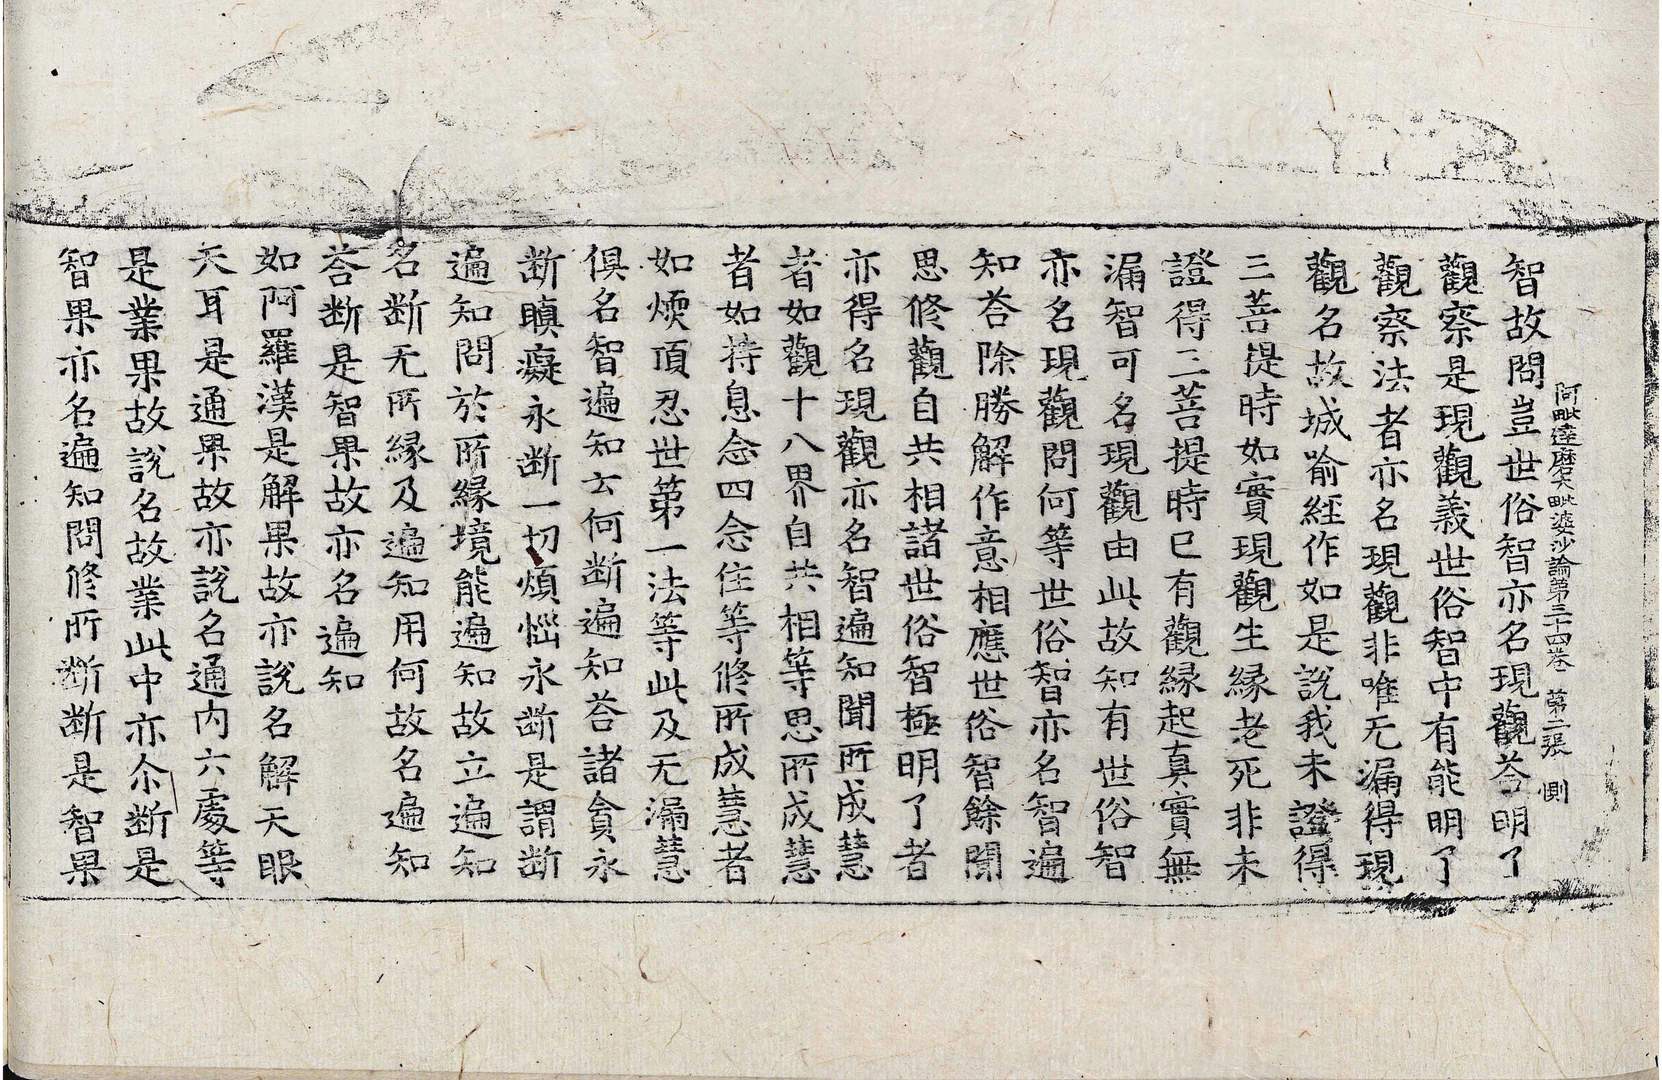 阿毗達磨大毗婆沙論第三十四卷　第二張　惻
智故問豈世俗智亦名現觀荅明了
觀察是現觀義世俗智中有能明了
觀察法者亦名現觀非唯无漏得現
觀名故城喻經作如是說我未證得
三菩提時如實現觀生緣老死非未
證得三菩提時已有觀緣起真實無
漏智可名現觀由此故知有世俗智
亦名現觀問何等世俗智亦名智遍
知荅除勝解作意相應世俗智餘聞
思修觀自共相諸世俗智極明了者
亦得名現觀亦名智遍知聞所成慧
者如觀十八界自共相等思所成慧
者如持息念四念住等修所成慧者
如煗頂忍世第一法等此及无漏慧
俱名智遍知云何断遍知荅諸貪永
断瞋癡永断一切煩惱永断是謂断
遍知問於所緣境能遍知故立遍知
名断无所緣及遍知用何故名遍知
荅断是智果故亦名遍知
如阿羅漢是解果故亦說名解天眼
天耳是通果故亦說名通内六處等
是業果故說名故業此中亦尒断是
智果亦名遍知問修所断断是智果